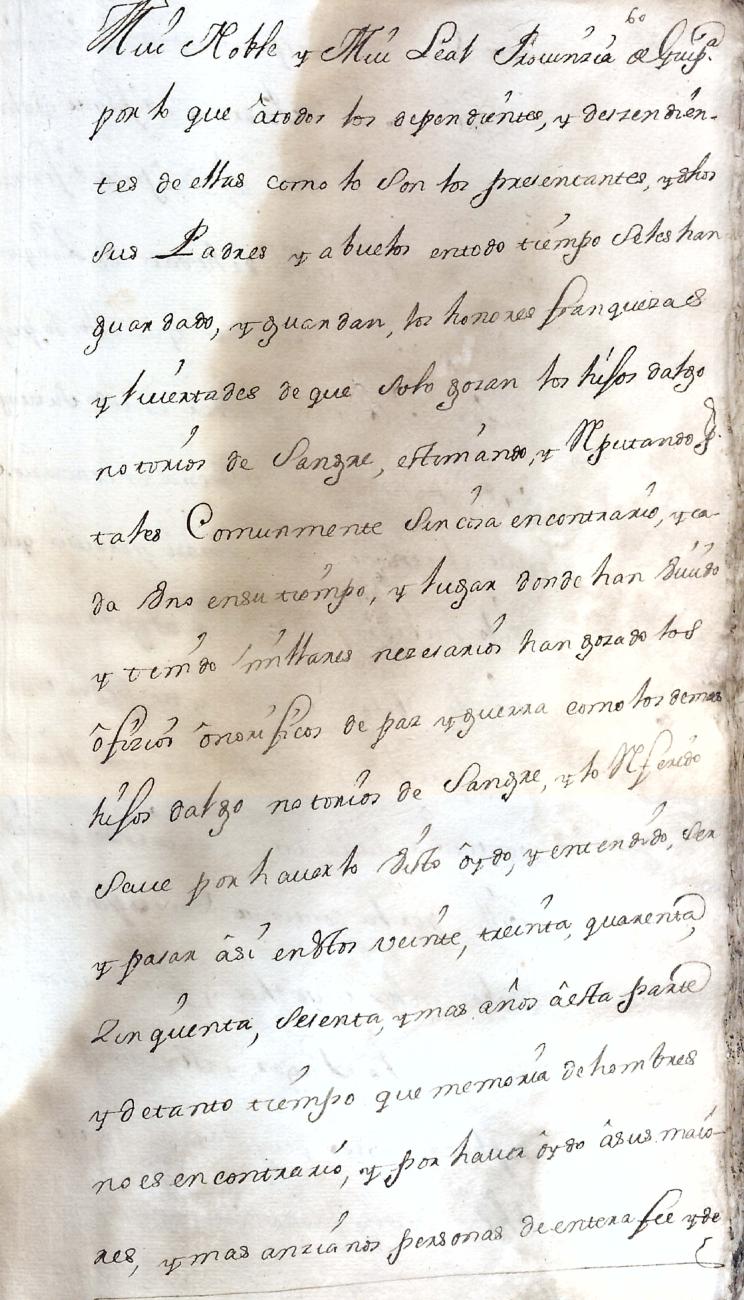 60
Mui Noble y Mui Leal Provinzia de Guipª.
por lo que âtodos los dependientes, y deszendien-
tes de ellas como lo son los presentantes, y dhos
sus Padres y abuelos entodo tiempo seles han
guardado, y guardan, los honores franquezas
y livertades de que solo gozan los hijos dalgo
notorios de Sangre, estimando, y Rputando p.
tales Comunmente sin cosa encontrario, y ca-
da vno ensu tiempo, y lugar donde han viuido
y tenido millares nezesarios han gozado los
ôfizios ônorificos de paz y guerra como los demas
hijos dalgo notorios de Sangre, y lo Rferido
saue por hauerlo visto ôydo, y entendido, ser
y pasar âsi en dhos veinte, treinta, quarenta,
Zinquenta, sesenta, y mas años âesta parte
y detanto tiempo que memoria de hombres
no es encontrario, y por hauer ôydo âsus maio-
res, y mas anzianos personas de entera fee y de